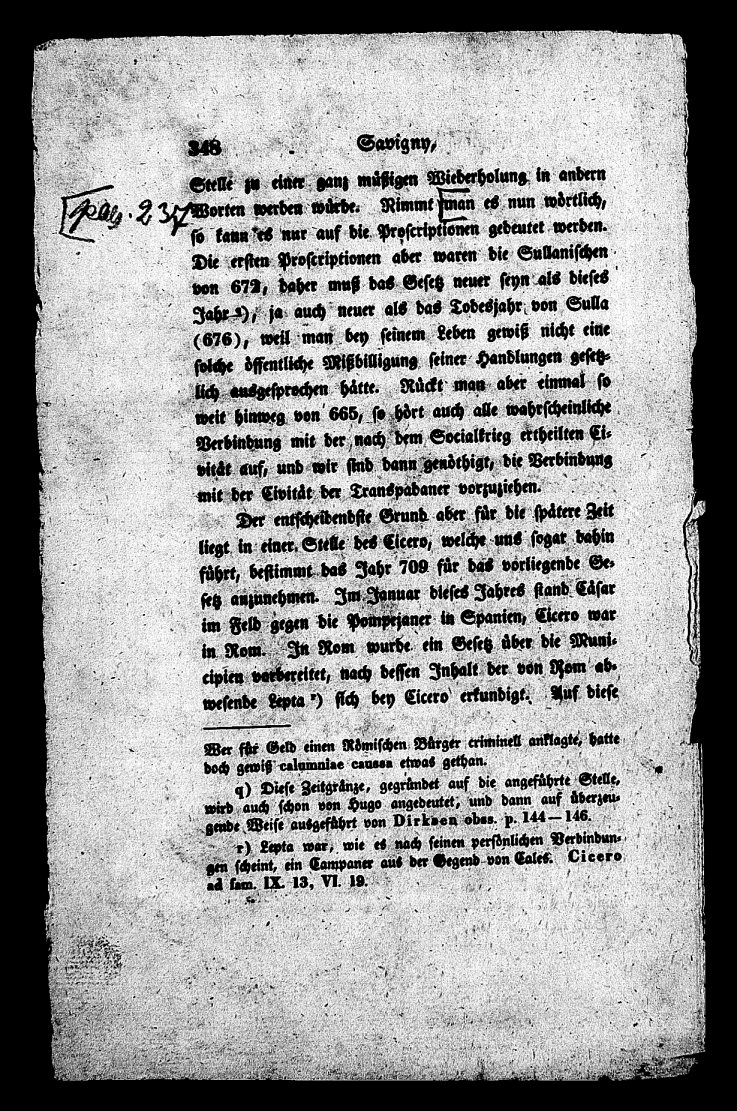 348 Savigny,
Stelle zu einer ganz müßigen Wiederholung in andern
[pag. 237
Worten werden würde. Nimmt [man es nun wörtlich,
so kann es nur auf die Proscriptionen gedeutet werden.
Die ersten Proscriptionen aber waren die Sullanischen
von 672, daher muß das Gesetz neuer seyn als dieses
Jahr q), ja auch neuer als das Todesjahr von Sulla
(676), weil man bey seinem Leben gewiß nicht eine
solche öffentliche Mißbilligung seiner Handlungen gesetz-
lich ausgesprochen hätte. Rückt man aber einmal so
weit hinweg von 665, so hört auch alle wahrscheinliche
Verbindung mit der nach dem Socialkrieg ertheilten Ci-
vität auf, und wir sind dann genöthigt, die Verbindung
mit der Civität der Transpadaner vorzuziehen.
Der entscheidendste Grund aber für die spätere Zeit
liegt in einer Stelle des Cicero, welche uns sogar dahin
führt, bestimmt das Jahr 709 für das vorliegende Ge-
setz anzunehmen. Im Januar dieses Jahres stand Cäsar
im Feld gegen die Pompejaner in Spanien, Cicero war
in Rom. In Rom wurde ein Gesetz über die Muni-
cipien vorbereitet, nach dessen Inhalt der von Rom ab-
wesende Lepta r) sich bey Cicero erkundigt. Auf diese
Wer für Geld einen Römischen Bürger criminell anklagte, hatte
doch gewiß calumniae caussa etwas gethan.
q) Diese Zeitgränze, gegründet auf die angeführte Stelle,
wird auch schon von Hugo angedeutet, und dann auf überzeu-
gende Weise ausgeführt von Dirksen obss. p. 144—146.
r) Lepta war, wie es nach seinen persönlichen Verbindun-
gen scheint, ein Campaner aus der Gegend von Cales. Cicero
ad fam. IX. 13, VI. 19.